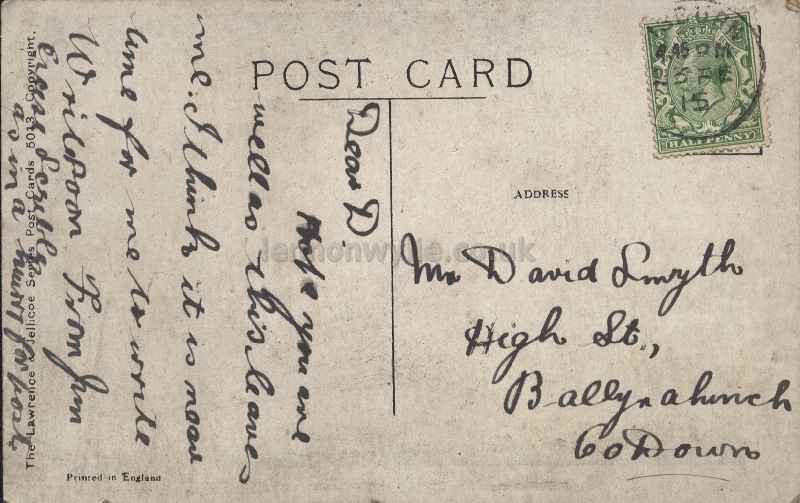 POST CARD
Dear D
Hope you are
well as this leaves
me. I think it is near
time for me to write
Write soon From Jim
excuse Scrible
as in a hurry for post
The Lawrence & Jellicoe Series Post Cards 5013 Copyright.
Printed in England
ADDRESS
Mr David Smyth
High St.,
Ballynahinch
Co Down
HALFPENNY
45 PM
FE
15
lennonwylie.co.uk